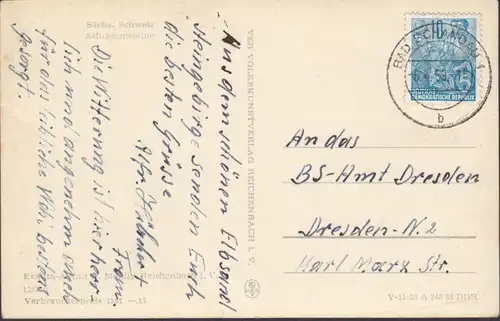 Sächs. Schweiz
Schrammsteine
Aus dem schönen Elbsand
steingebirge senden Euch
die besten Grüsse
Alfr.
Fram.
Die Witterung ist hier herr-
lich und angenehm einen
für das leibliche Wohl bestens
gesorgt.
VEB VOLKSKUNSTVERLAG REICHENBACH I. V.
10
DEUTSCHE
DEMOKRATISCHE REPUBLIK
BAD SCHANDAU 1
b
An das
BS-Amt Dresden
Dresden-N. 2
Karl Marx Str.
Reichenbach i. V.
12/
Verbraucherpreis DM -.15
V-11-28 A 246 54 DDR